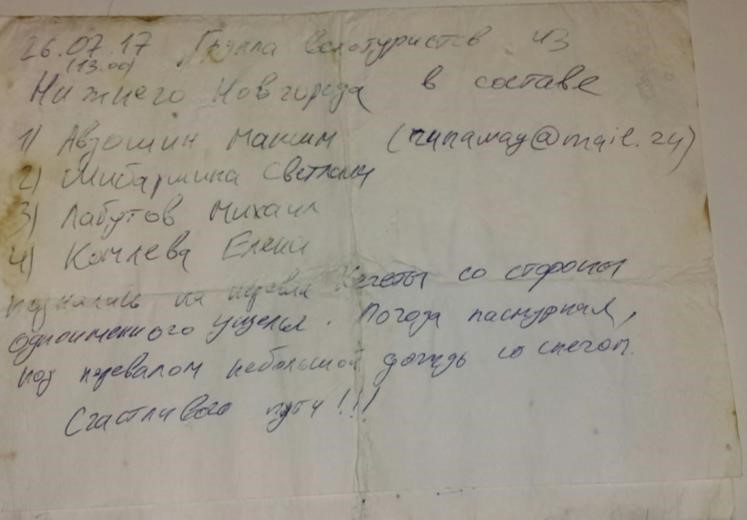 26.07.17 Группа велотуристов из
(13.00)
Нижнего Новгорода в составе
1) Авзошин Максим
2) Шибаршина Светлана
3) Лабутов Михаил
4) Елена
поднялись на перевал Кегеты со стороны
одноименного ущелья. Погода пасмурная,
под перевалом небольшой дождь со снегом.
Счастливого пути!!!